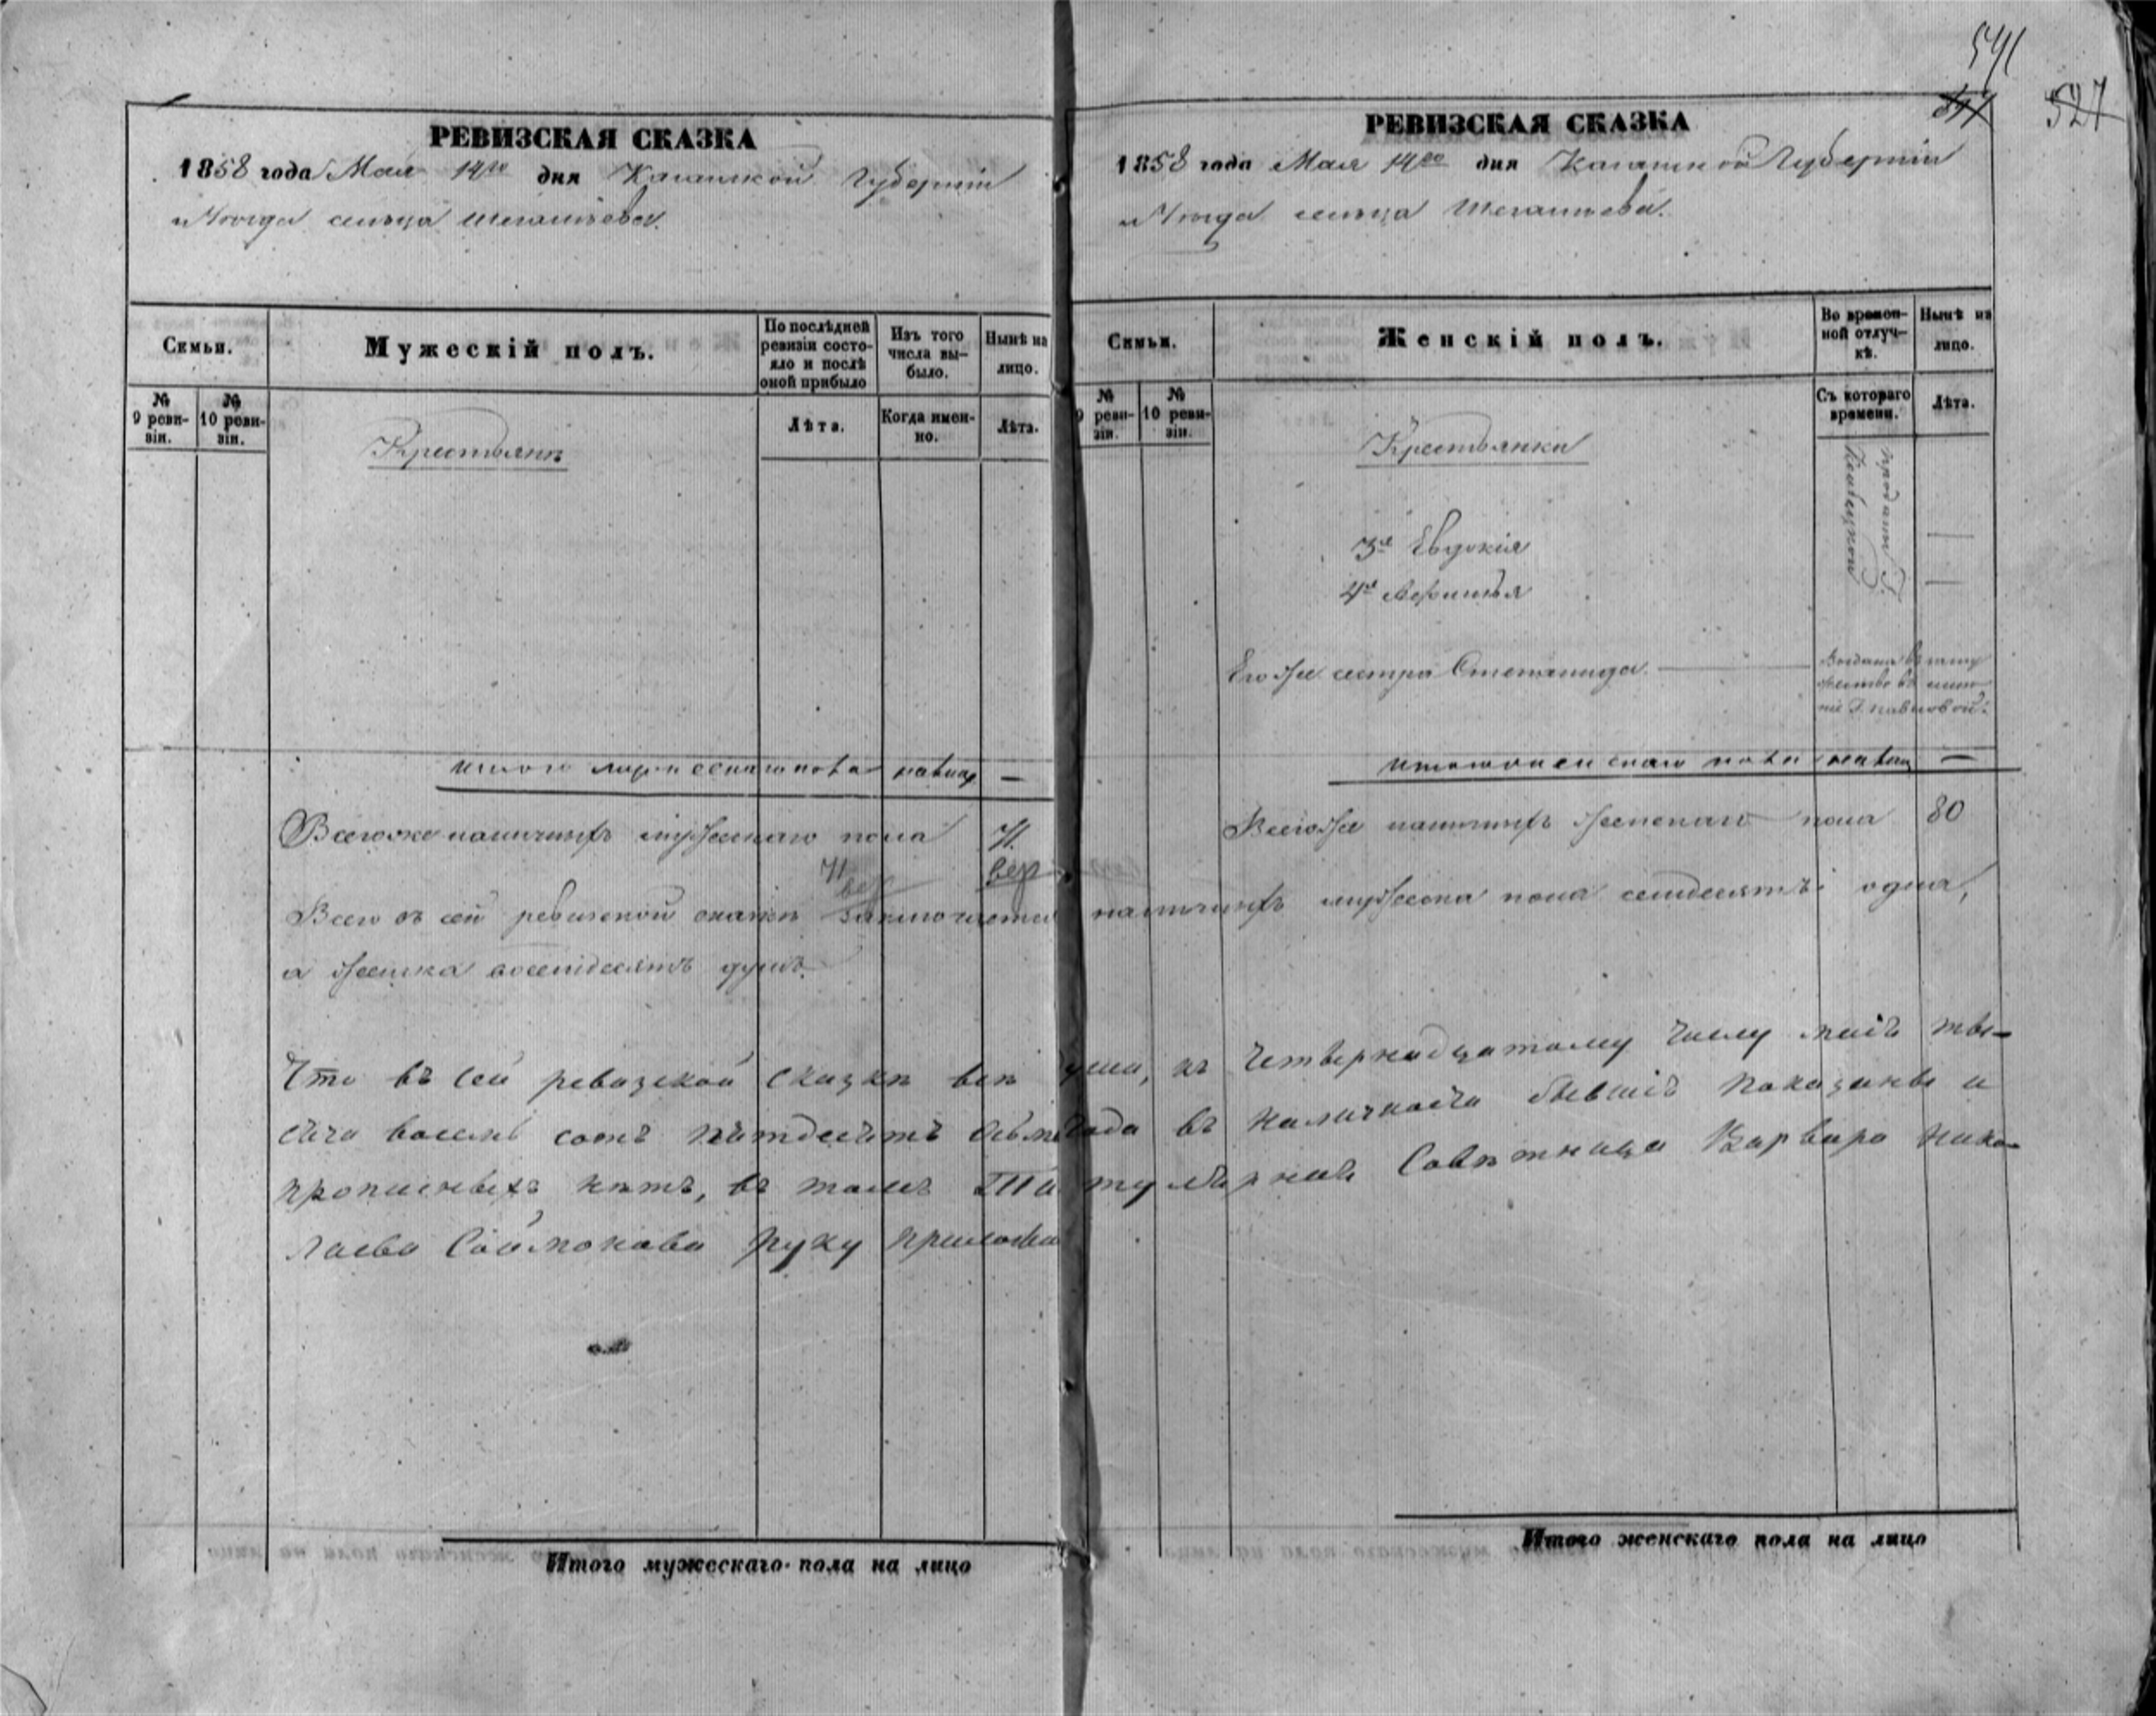 РЕВИЗСКАЯ СКАЗКА
1858 года Мая 14го дня Казанской Губерніи
и Уѣзда сельца
Семьи.
Мужескій полъ.
По послѣдней ревизіи состояло и послѣ оной прибыло
Изъ того числа выбыло.
Нынѣ на лицо.
№ 9 ревизіи.
№ 10 ревизіи.
Лѣта.
Когда именно.
Лѣта.
Крестьяне
Итого мужескаго пола налицо —
Всегоже наличныхъ мужескаго пола 71.
71
Всего въ сей ревизской сказкѣ заключается наличныхъ мужеска пола семдесятъ одна,
а женска восемдесятъ душъ.
Что въ сей ревизской сказкѣ всѣ души, къ четвернадцатому числу маія тыс-
сяча восемь сотъ пятдесятъ года въ наличности бывшія показаны и
прописныхъ нѣтъ, въ томъ Титулярная Совѣтница Варвара Нико-
лаева руку приложила
Итого мужескаго пола на лицо
541
527
РЕВИЗСКАЯ СКАЗКА
1858 года Мая 14го дня Казанской Губерніи
и Уѣзда сельца
Семьи.
Женскій полъ.
Во временной отлучкѣ.
Нынѣ на лицо.
№ 9 ревизіи.
№ 10 ревизіи.
Съ котораго времени.
Лѣта.
Крестьянки
проданы Г.
3я Евдокія —
4я —
Его же сестра Степанида
Выдана въ заму
жество въ име
ніе Г. Павловой.
Итого женскаго пола налицо —
Всего же наличныхъ женскаго пола 80
Итого женскаго пола на лицо